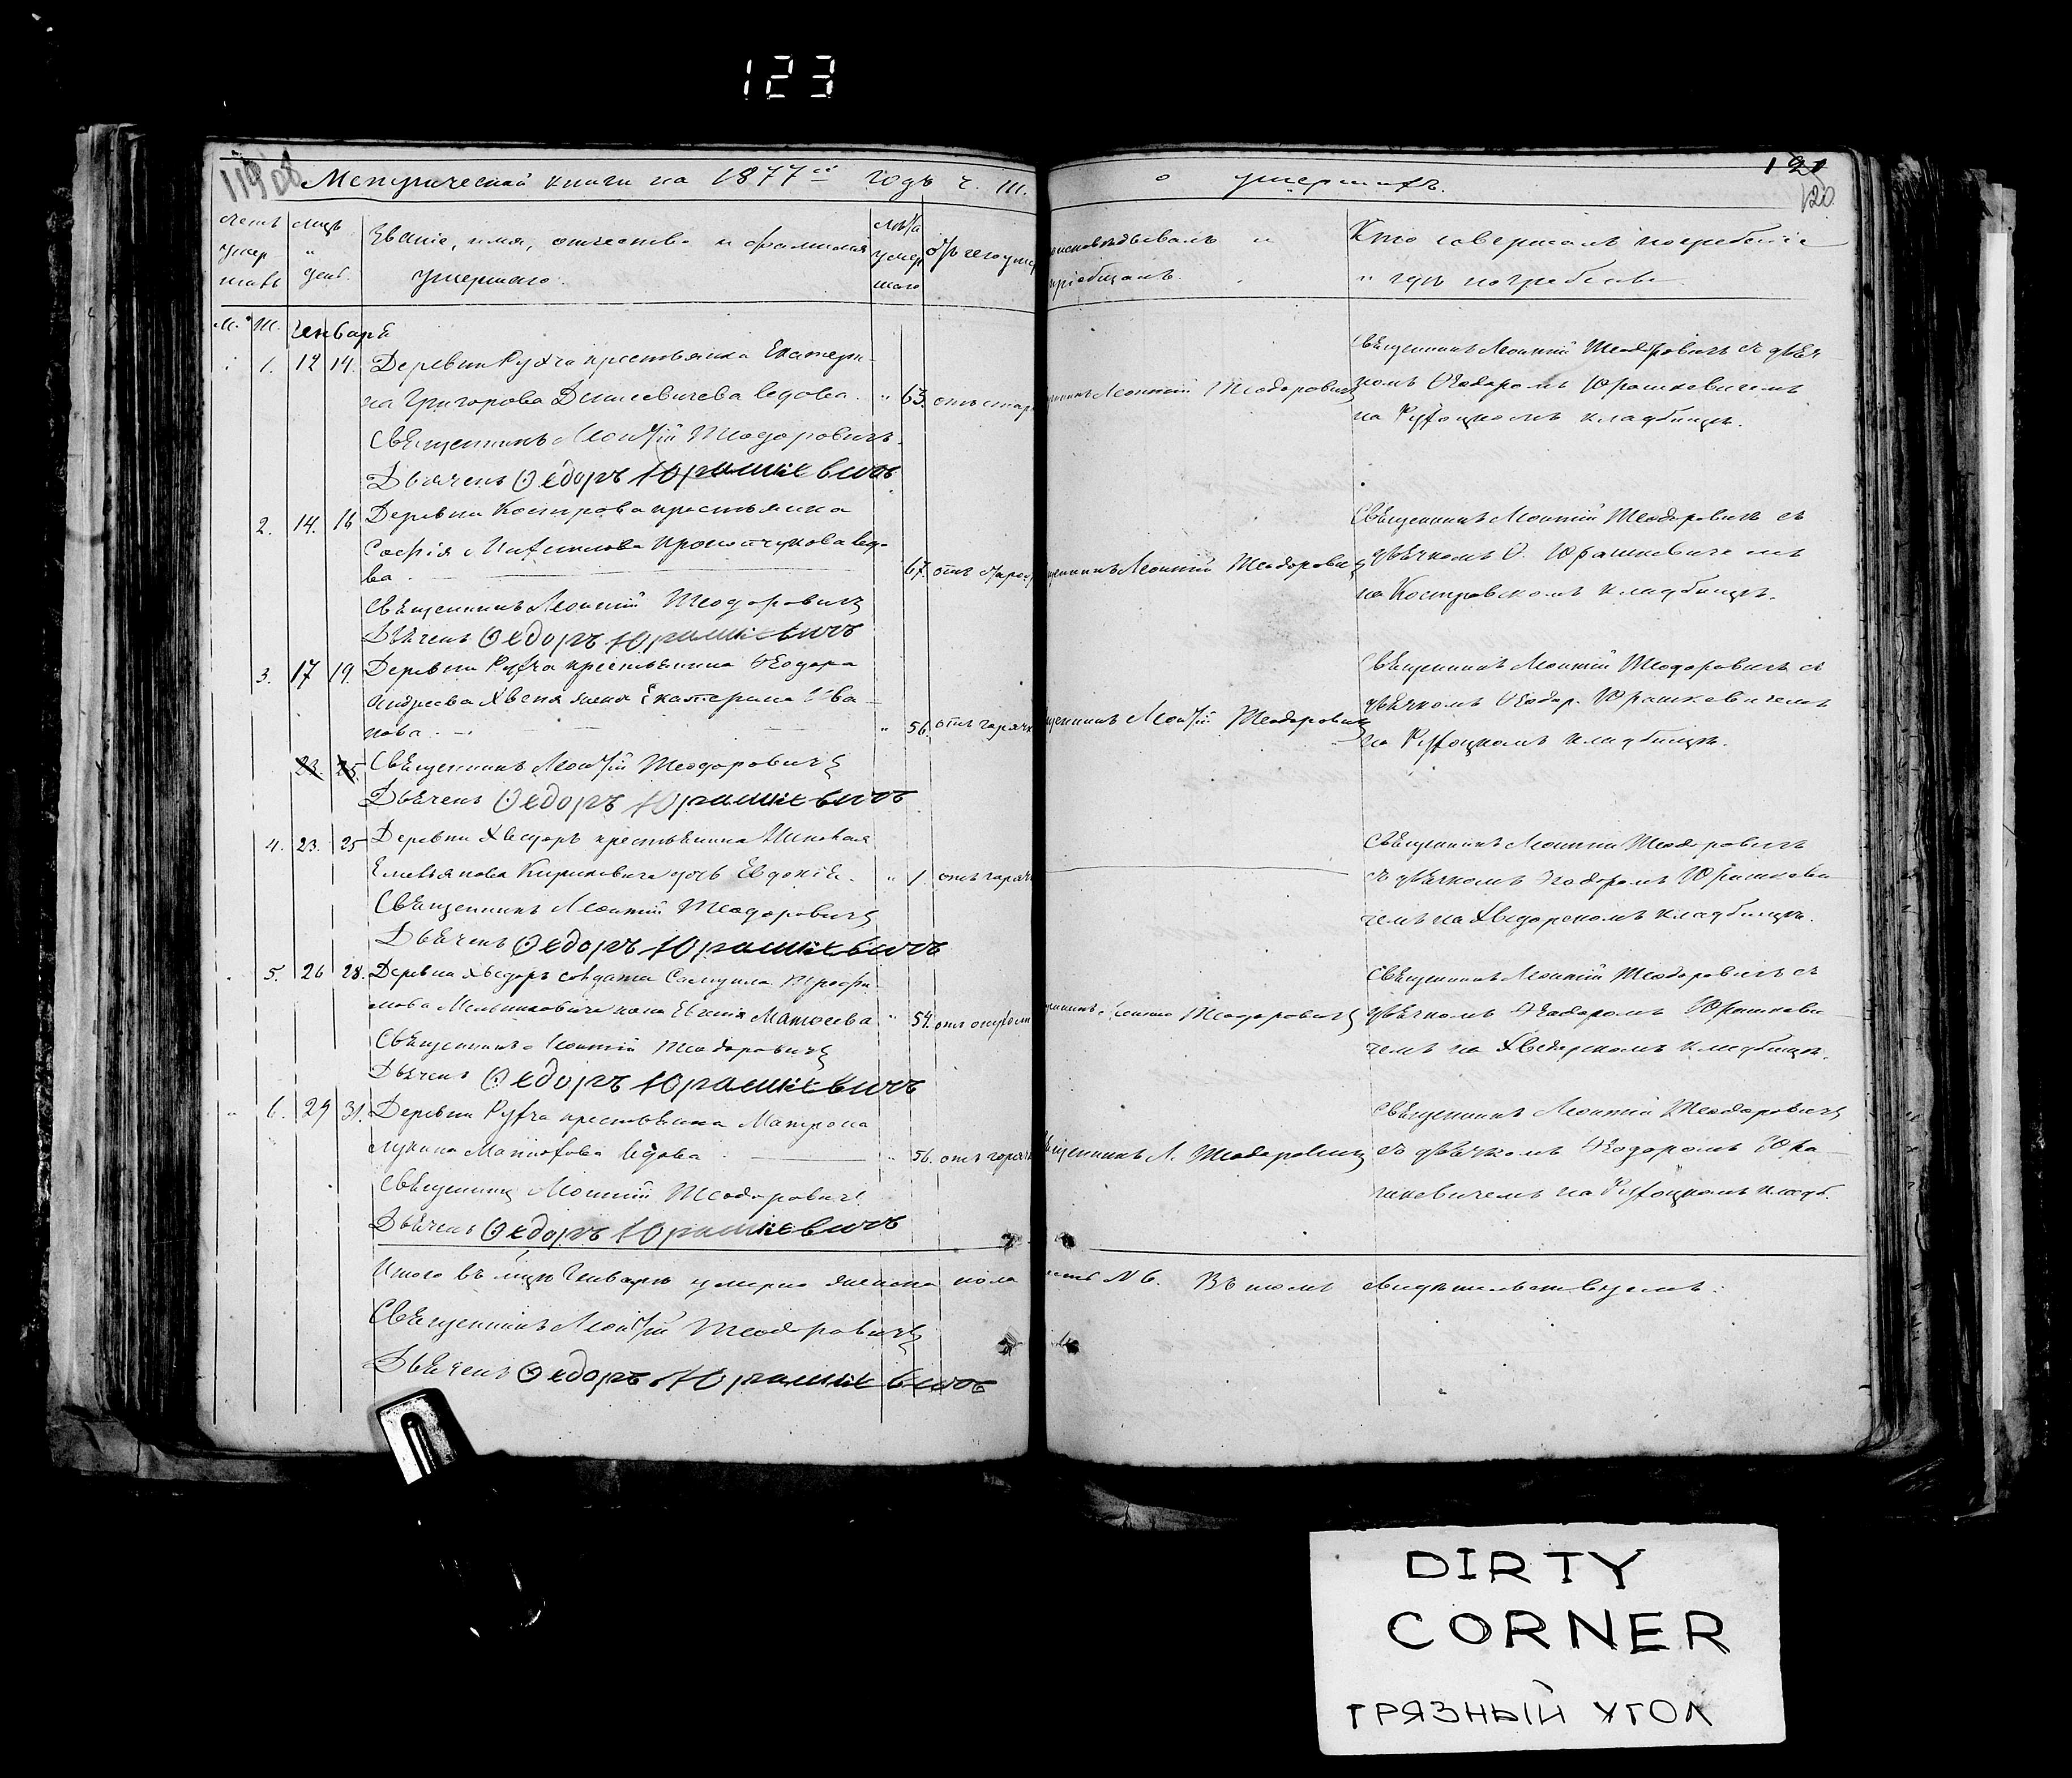 123
119 об
Метрической книги на 1877й годъ ч. III.
о умершихъ.
121
120
Счетъ умер шихъ
мцъ и день
Званіе, имя, отчество и фамилія умершаго.
лѣта умер шаго
отъ чего умер
исповѣдывалъ и пріобщалъ.
Кто совершалъ погребеніе и гдѣ погребенъ
М. Ж. Генваря
1. 12 14. Деревни Рухча крестьянка Екатери-
на Григорова Денисевичева вдова. " 63. отъ стар
Священникъ Леонтій Теодоровичъ.
Дьячекъ Ѳедоръ Юрашкевичъ
Леонтій Теодоровичъ
Священникъ Леонтій Теодоровичъ съ дьяч-
комъ Ѳеодоромъ Юрашкевичемъ
на кладбищѣ.
2. 14. 16 Деревни Кострова крестьянка
Софія вдо-
ва. 67. отъ старос
Священникъ Леонтій Теодоровичъ
Дьячекъ Ѳедоръ Юрашкевичъ
Леонтій Теодоровичъ
Священникъ Леонтій Теодоровичъ съ
дьячкомъ Ѳ. Юрашкевичемъ
на Костровскомъ кладбищѣ.
3. 17 19. Деревни Рухча крестьянина Ѳеодора
Андреева Хвеня жена Екатерина Ива-
нова. " 56. отъ горячк
23. 25 Священникъ Леонтій Теодоровичъ
Дьячекъ Ѳедоръ Юрашкевичъ
Леонтій Теодоровичъ
Священникъ Леонтій Теодоровичъ съ
дьячкомъ Ѳеодор. Юрашкевичемъ
на кладбищѣ.
4. 23. 25 Деревни Хведоръ крестьянина Николая
Емельянова Кириковича дочь Евдокія. " 1 отъ горяч
Священникъ Леонтій Теодоровичъ
Дьячекъ Ѳедоръ Юрашкевичъ
Священникъ Леонтій Теодоровичъ
съ дьячкомъ Ѳеодоромъ Юрашкеви-
чемъ на Хведорскомъ кладбищѣ.
5. 26 28. Деревни Хведоръ солдата Самуила Трофи-
мова Мельниковича жена Евгенія Матѳеева " 54. отъ опухоли
Священникъ Леонтій Теодоровичъ
Дьячекъ Ѳедоръ Юрашкевичъ
Леонтій Теодоровичъ
Священникъ Леонтій Теодоровичъ съ
дьячкомъ Ѳеодоромъ Юрашкеви-
чемъ на Хведорскомъ кладбищѣ.
6. 29 31. Деревни Рухча крестьянка Матрона
Лукина вдова. " 56. отъ горяч
Священникъ Леонтій Теодоровичъ
Дьячекъ Ѳедоръ Юрашкевичъ
Священникъ Л. Теодоровичъ
Священникъ Леонтій Теодоровичъ
съ дьячкомъ Ѳеодоромъ Юра-
шкевичемъ на кладб.
Итого въ мцѣ Генварѣ умерло женска пола
N 6. Въ томъ свидѣтельствуемъ:
Священникъ Леонтій Теодоровичъ
Дьячекъ Ѳедоръ Юрашкевичъ
DIRTY
CORNER
ГРЯЗНЫЙ УГОЛ